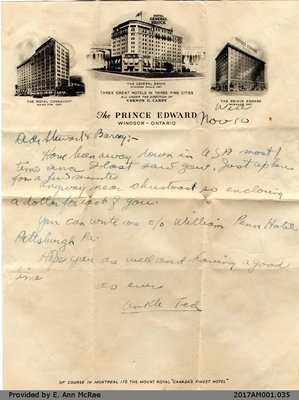 HOTEL
GENERAL BROCK
THE GENERAL BROCK
NIAGARA FALLS ONT.
THREE GREAT HOTELS IN THREE FINE CITIES
ALL UNDER THE DIRECTION OF
VERNON G. CARDY
THE ROYAL CONNAUGHT
HAMILTON ONT.
THE PRINCE EDWARD
WINDSOR ONT.
The PRINCE EDWARD
WINDSOR - ONTARIO
Nov 10
Dear Stewart & Barry:-
Have been away down in USA most
time since I last saw you. Just up here
for a few minutes
Anyway near christmas so enclosing
a dollar for each of you.
You can write me c/o William Penn Hotel
Pittsburgh Pa.
Hope you are well and having a good
time
as ever
Unkle Ted
OF COURSE IN MONTREAL IT'S THE MOUNT ROYAL "CANADA'S FINEST HOTEL"
Provided by E. Ann McRae
2017AM001.035